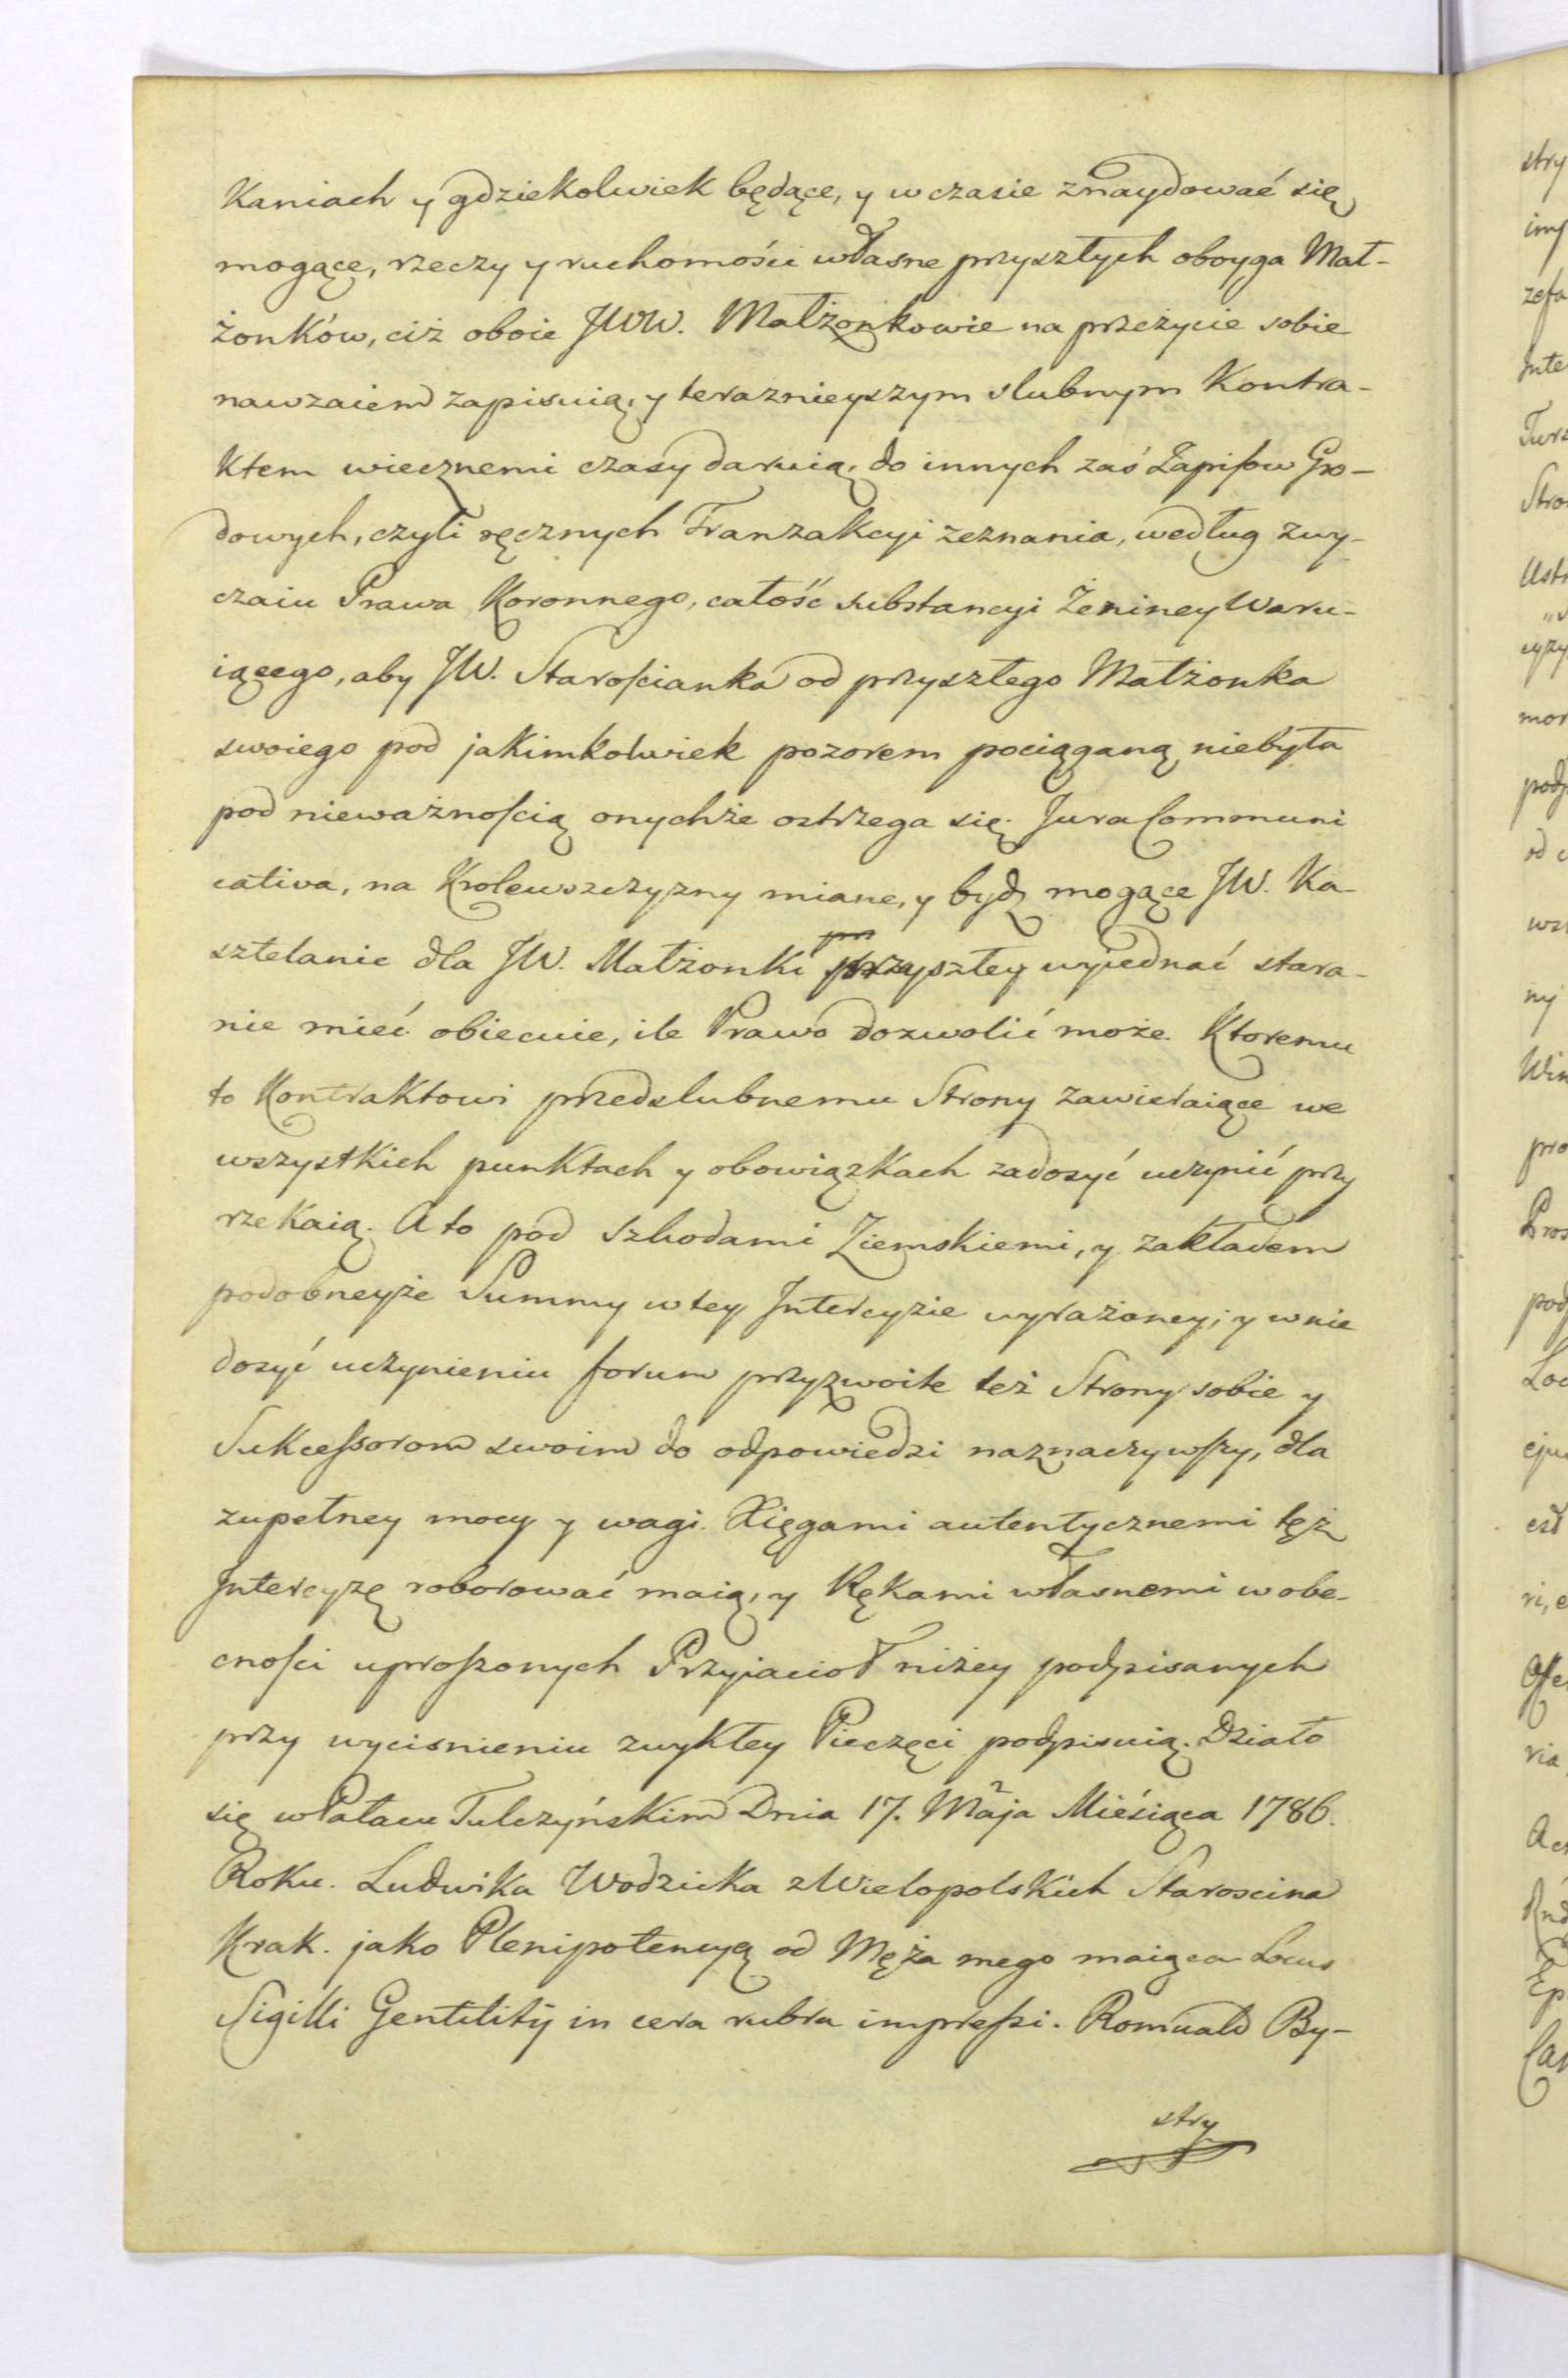 Kaniach y gdziekolwiek będące, y w czasie znaydować się
mogące, rzeczy y ruchomości własne przyszłych oboyga Mał-
żonków, ciż oboie JWW. Małżonkowie na przeżycie sobie
nawzaiem zapisuią, y teraznieyszym slubnym Kontra-
ktem wiecznemi czasy daruią, do innych zaś Zapisow Gro-
dowych, czyli ręcznych Tranzakcyi zeznania, według zwy-
czaiu Prawa Koronnego, całość substancyi Żeniney Waru-
iącego, aby JW. Starościanka od przyszłego Małżonka
swoiego pod jakimkolwiek pozorem pociąganą niebyła
pod nieważnością onychże ostrzega się. Jura Communi
cativa, na Krolewszczyzny miane, y bydź mogące JW. Ka-
sztelanic dla JW. Małżonki przyszłey wyiednać stara-
nie mieć obiecuie, ile Prawo dozwolić może. Ktoremu
to Kontraktowi przedslubnemu Strony zawieraiące we
wszystkich punktach y obowiązkach zadosyć uczynić przy
rzekaią. A to pod szkodami Ziemskiemi, y zakładem
podobneyże Summy w tey Intercyzie wyrażoney; y w nie
dosyć uczynieniu forum przyzwoite też Strony sobie y
Sukcessorom swoim do odpowiedzi naznaczywszy, dla
zupełney mocy y wagi. Xięgami autentycznemi tęż
Intercyzę roborować maią, y Rękami własnemi w obe-
cności uproszonych Przyiacioł niżey podpisanych
przy wycisnieniu zwykłey Pieczęci podpisuią. Działo
się w Pałacu Tulczyńskim Dnia 17. Maja Miesiąca 1786.
Roku. Ludwika Wodzicka z Wielopolskich Staroscina
Krak. jako Plenipotencyą od Męża mego maiąca Locus
Sigilli Gentilitÿ in cera rubra impressi. Romuald By-
stry